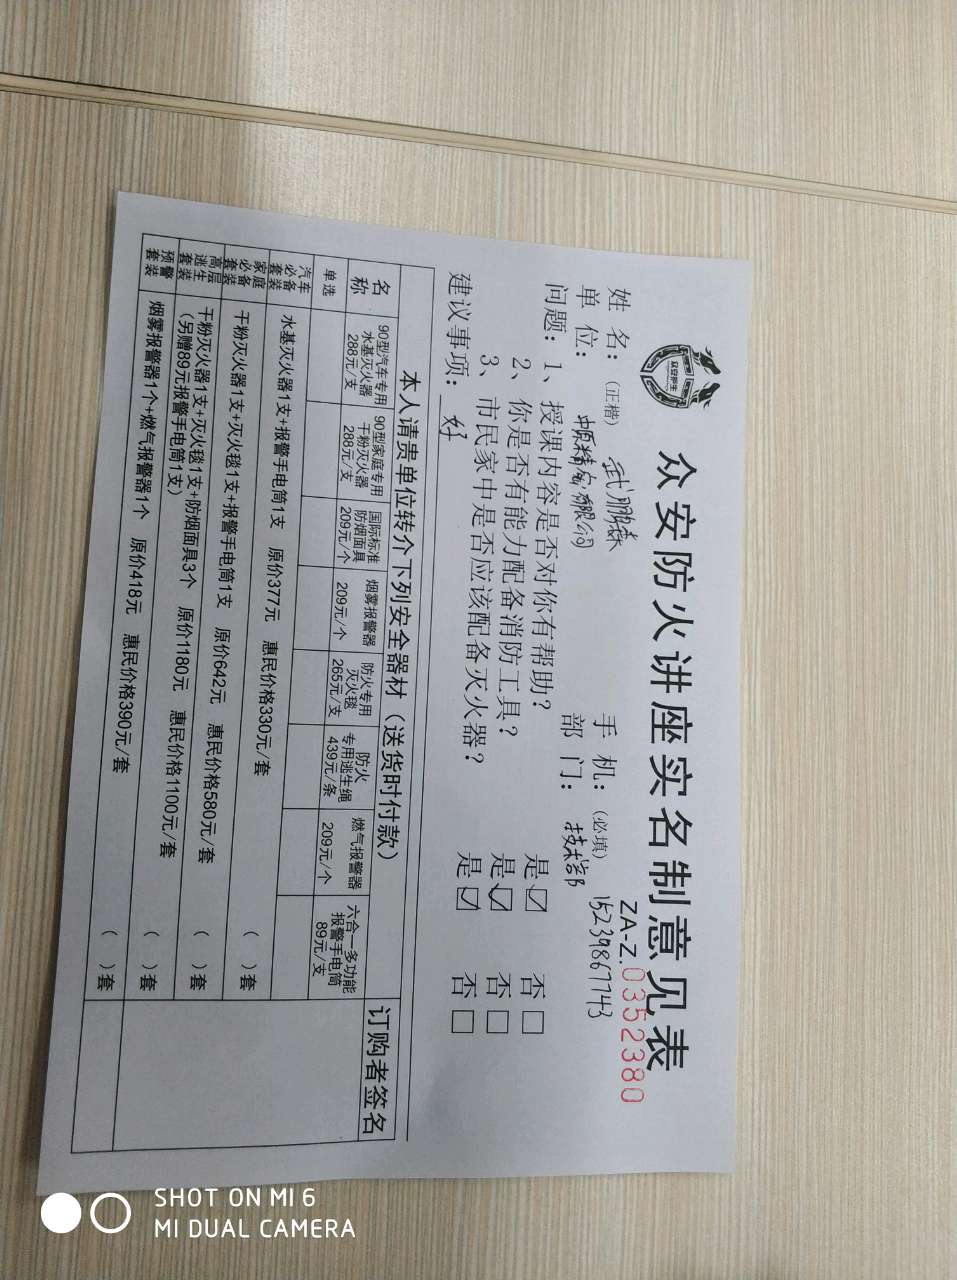 众安护生
众安防火讲座实名制意见表
ZA-Z.0352380
姓 名：（正楷） 武鹏森 手 机：（必填） 15239867743
单 位： 中原精密有限公司 部 门： 技术部
问题：1、授课内容是否对你有帮助？ 是☑ 否□
2、你是否有能力配备消防工具？ 是☑ 否□
3、市民家中是否应该配备灭火器？ 是☑ 否□
建议事项： 好
本人请贵单位转介下列安全器材（送货时付款） 订购者签名
名称 90型汽车专用水基灭火器288元/支 90型家庭专用干粉灭火器288元/支 国际标准防烟面具209元/个 烟雾报警器209元/个 防火专用灭火毯265元/支 防火专用逃生绳439元/条 燃气报警器209元/个 六合一多功能报警手电筒89元/支
单选
汽车必备套装 水基灭火器1支+报警手电筒1支 原价377元 惠民价格330元/套 （ ）套
家庭必备套装 干粉灭火器1支+灭火毯1支+报警手电筒1支 原价642元 惠民价格580元/套 （ ）套
高层逃生套装 干粉灭火器1支+灭火毯1支+防烟面具3个 原价1180元 惠民价格1100元/套 （ ）套
（另赠89元报警手电筒1支）
预警套装 烟雾报警器1个+燃气报警器1个 原价418元 惠民价格390元/套 （ ）套
SHOT ON MI 6
MI DUAL CAMERA